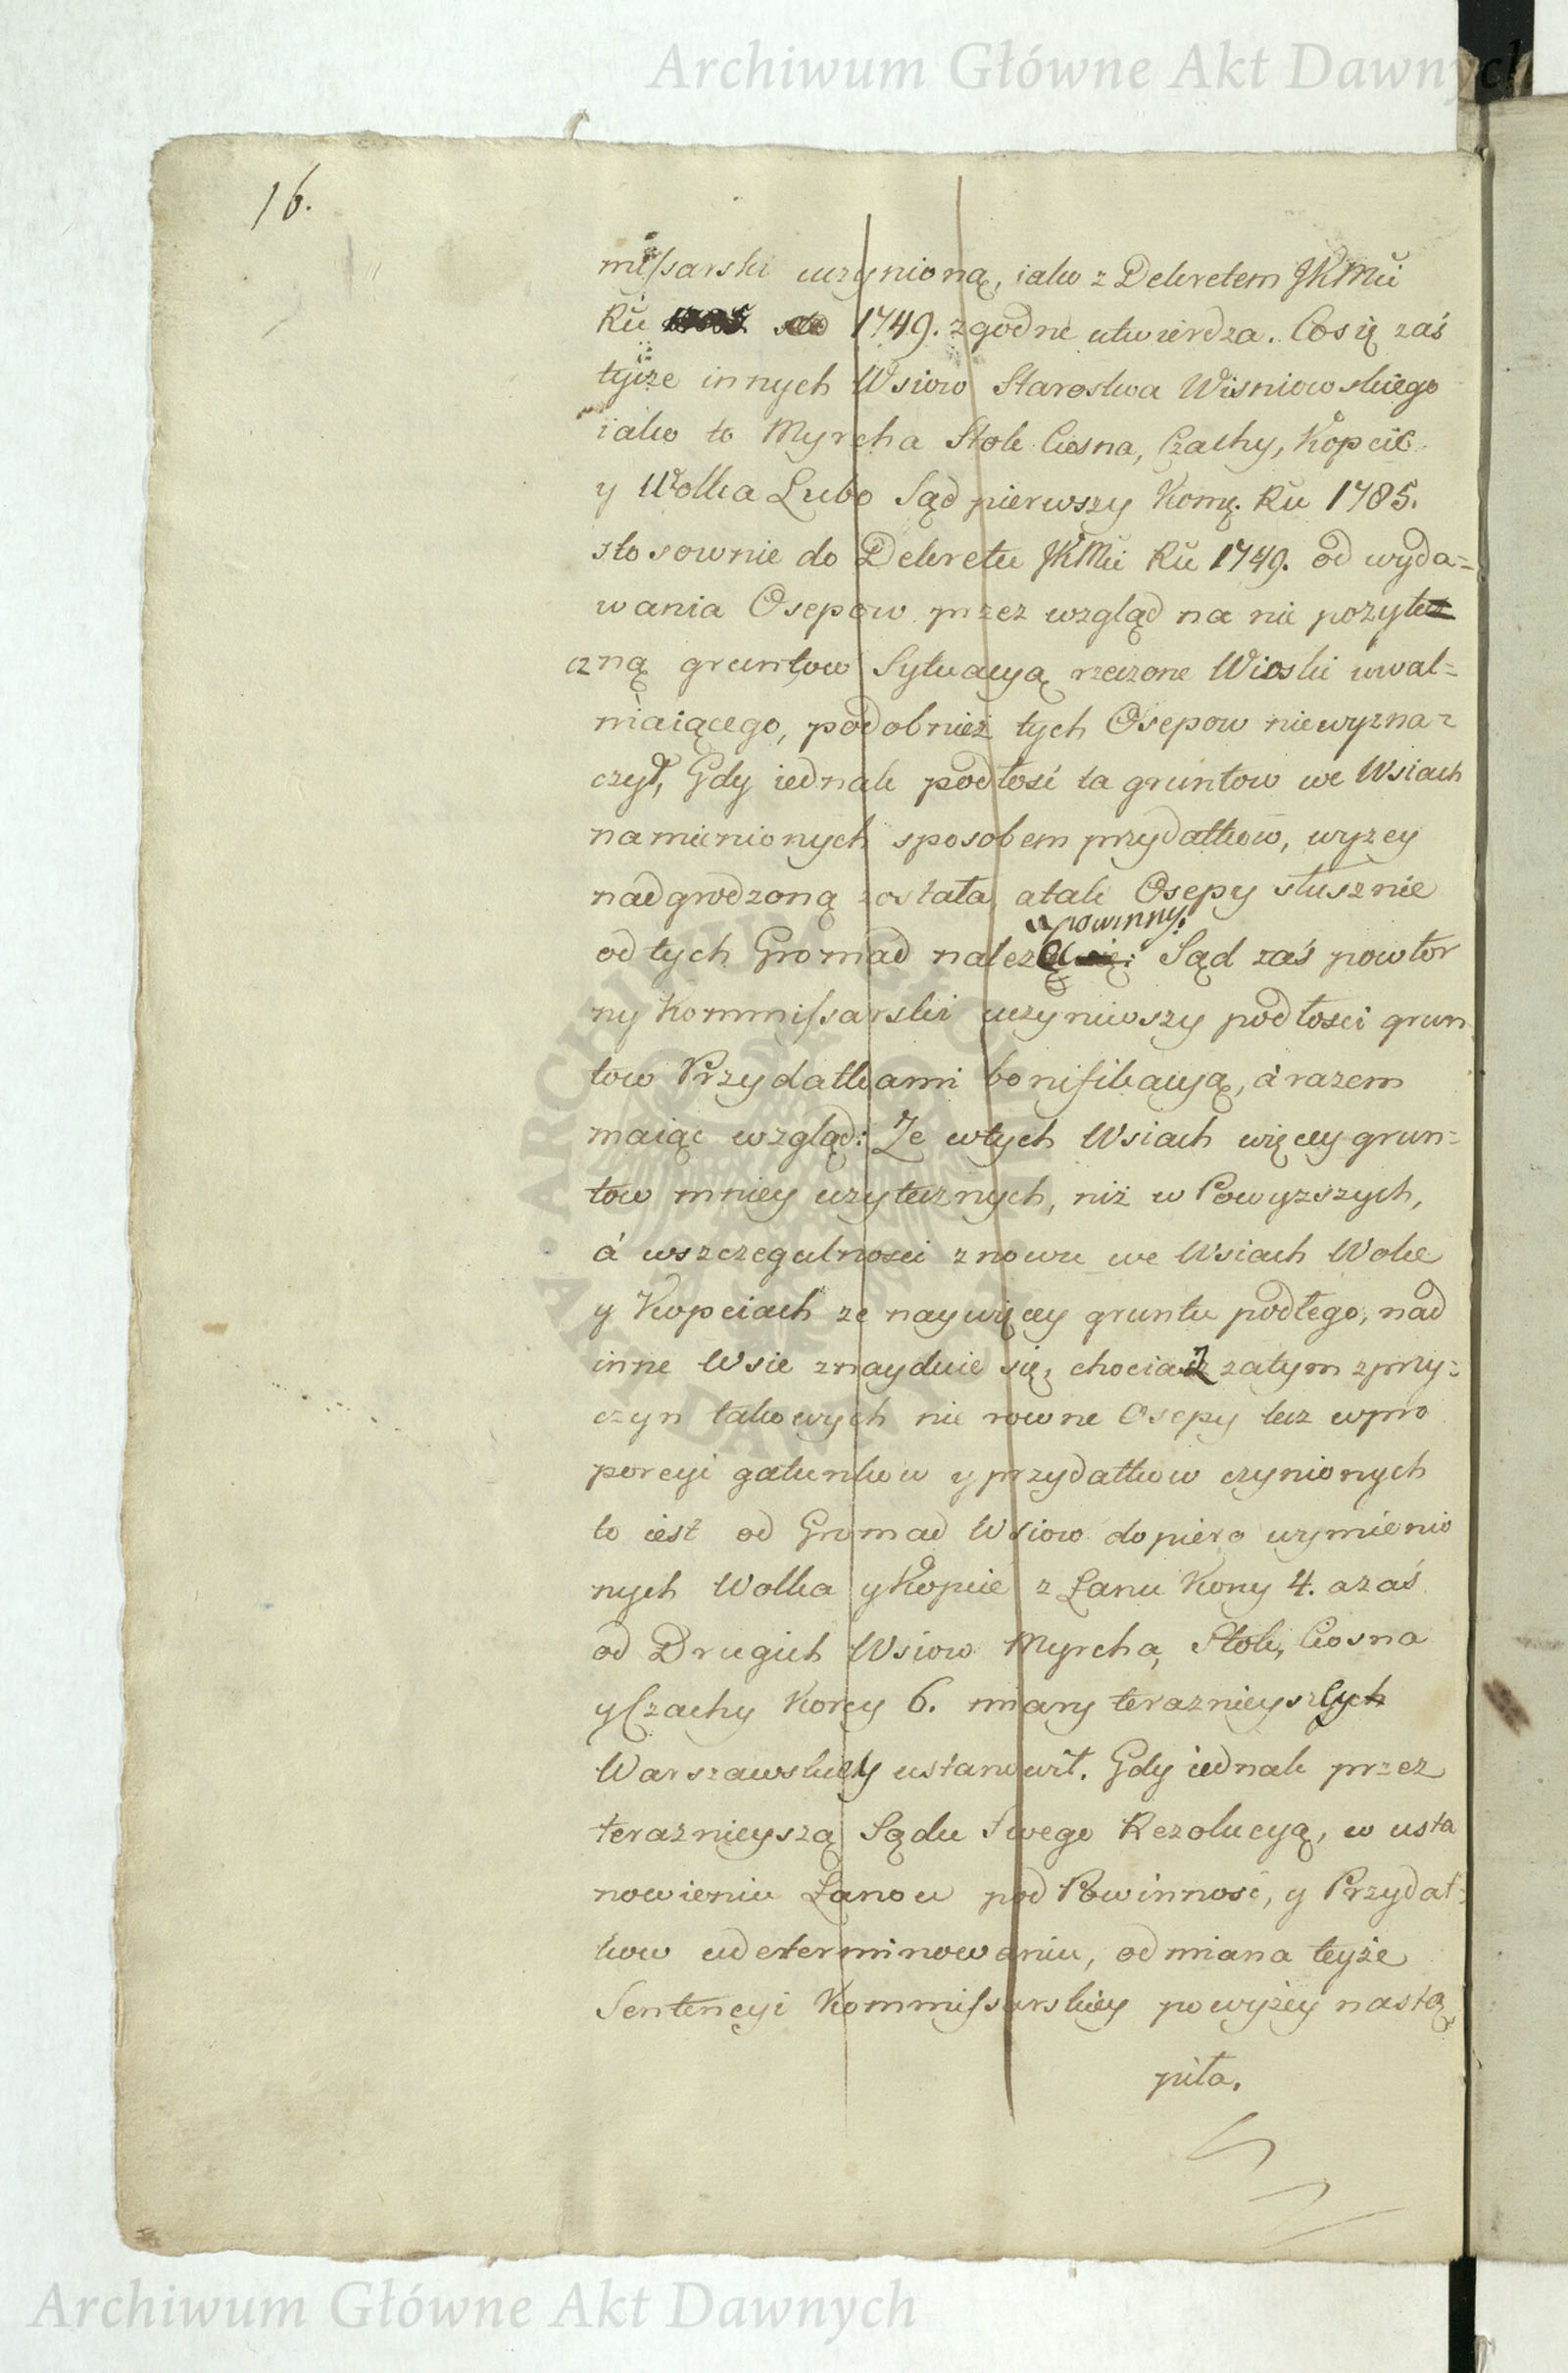 Archiwum Główne Akt Dawnych
16.
missarski uczynioną, iako z Dekretem JKMći
Ku 1749. zgodne utwierdza. Co się zaś
tycze innych Wsiow Starostwa Wisniowskiego
iako to Myrcha Stok Ciosna, Czachy, Kopcie
y Wolka Lubo Sąd pierwszy Komę. Ru 1785.
stosownie do Dekretu JKMći Ru 1749. od wyda=
wania Osepow przez wzgląd na nie pozyte
czną gruntow Sytuacyą rzeczone Wioski uwal=
niaiącego, podobnież tych Osepow niewyzna=
czył, Gdy iednak podłość ta gruntow we Wsiach
namienionych sposobem przydatkow, wyzey
nadgrodzoną została a tak Osepy słusznie
powinny.
od tych Gromad należą Sąd zaś powtor
ny Kommissarski uczyniwszy podłości grun
tow Przydatkami bonifikacyą, á razem
maiąc wzgląd: Ze wtych Wsiach więcey grun=
tow mniey uzytecznych, niż w Powyzszych,
á wszczegulności znowu we Wsiach Wolce
y Kopciach ze naywięcey gruntu podłego, nad
inne Wsie znayduie się, chociaż zatym zprzy=
czyn takowych nie rowne Osepy lecz wpro
porcyi gatunkow y przydatkow czynionych
to iest od Gromad Wsiow dopiero wymienio
nych Wolka y Kopcie z Łanu Korcy 4. azaś
od Drugich Wsiow Myrcha, Stok, Ciosna
y Czachy Korcy 6. miary teraznieyszych
Warszawskiey ustanowił. Gdy iednak przez
teraznieyszą Sądu Swego Rezolucyą, w usta
nowieniu Łanow pod Powinność, y Przydat=
kow udeterminowaniu, odmiana teyże
Sentencyi Kommissarskiey powyżey nastą
piła.
ARCHIWUM GŁÓWNE AKT DAWNYCH
Archiwum Główne Akt Dawnych